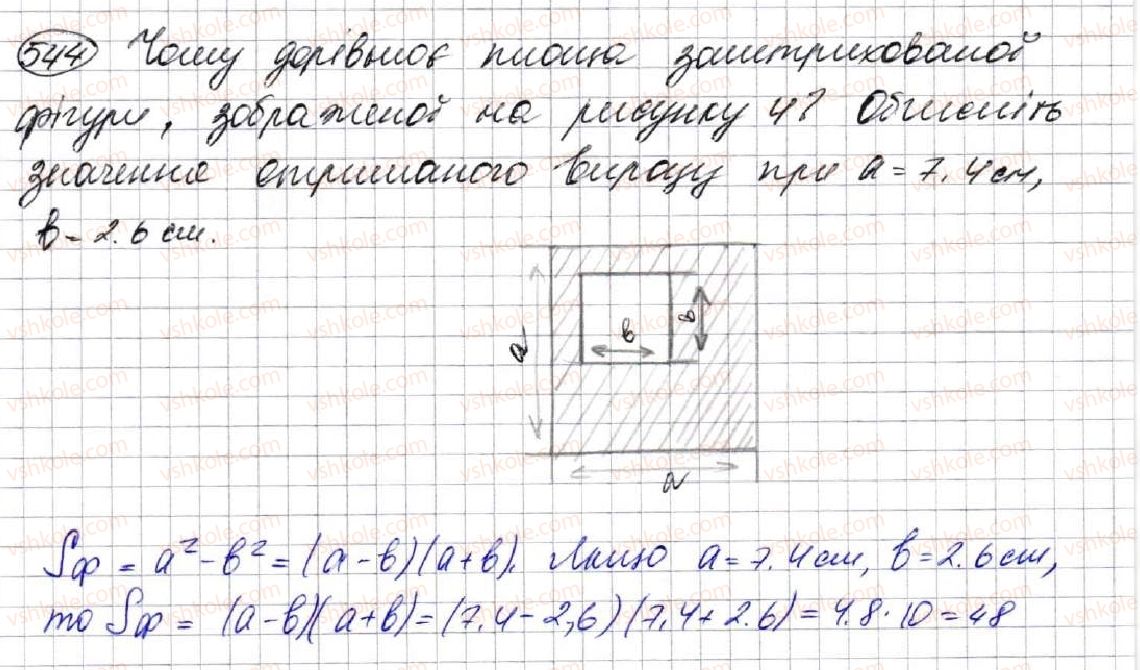 544 Чому дорівнює площа заштрихованої
фігури, зображеної на рисунку 4? Обчисліть
значення отриманого виразу при a = 7.4 см,
b = 2.6 см.
a
b
b
a
Sф = a² - b² = (a - b)(a + b). Якщо a = 7.4 см, b = 2.6 см,
то Sф = (a - b)(a + b) = (7,4 - 2,6)(7,4 + 2.6) = 4.8 · 10 = 48